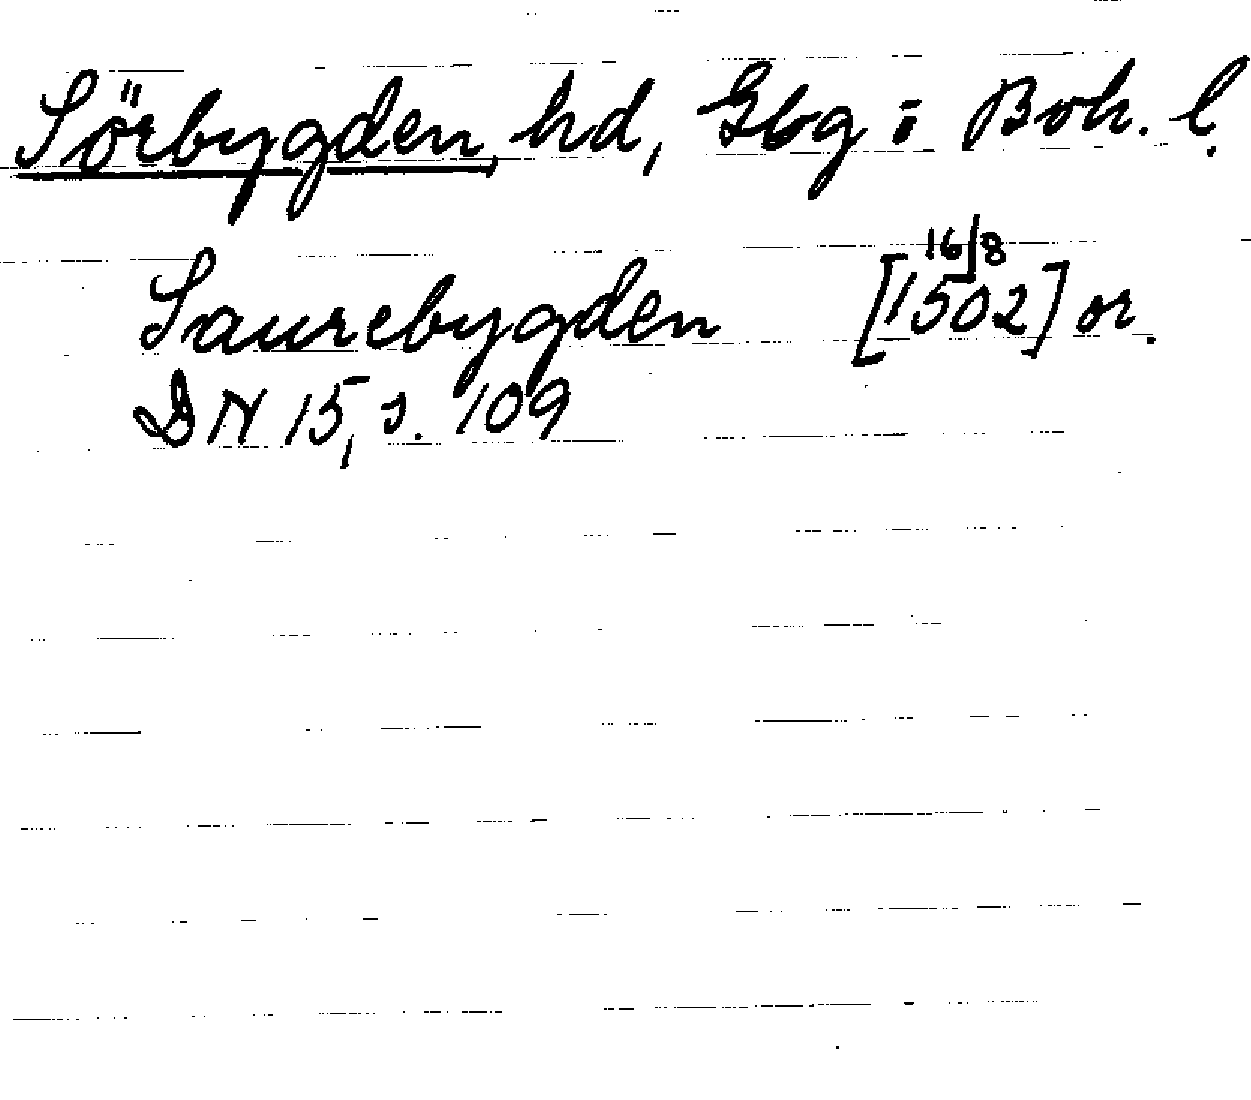 Sörbygden, hd, Gbg o Boh. l.
16/8
Saurebygden [1502] or.
DN 15, s. 109